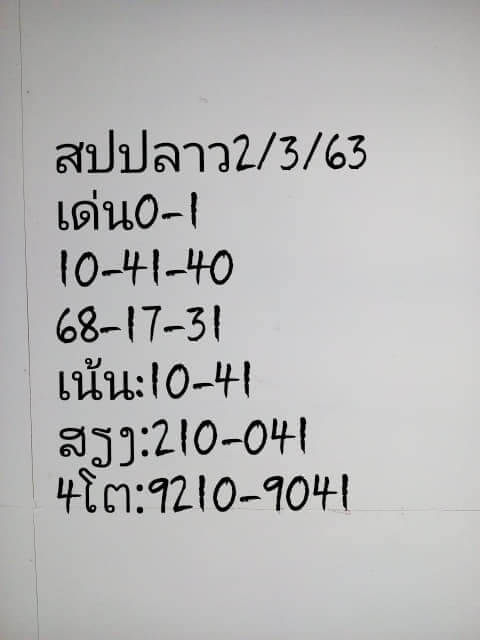 สปปลาว2/3/63
เด่น0-1
10-41-40
68-17-31
เน้น:10-41
สรฺง:210-041
4โต:9210-9041